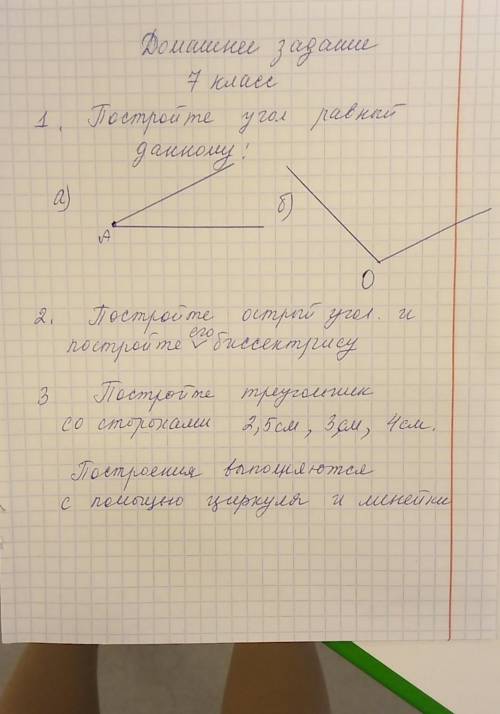 Домашнее задание
7 класс
1. Постройте угол равный
данному:
а) б)
А
О
2. Постройте острый угол. и
постройте его биссектрису
3 Постройте треугольник
со сторонами 2,5см, 3см, 4см.
Построения выполняются
с помощью циркуля и линейки